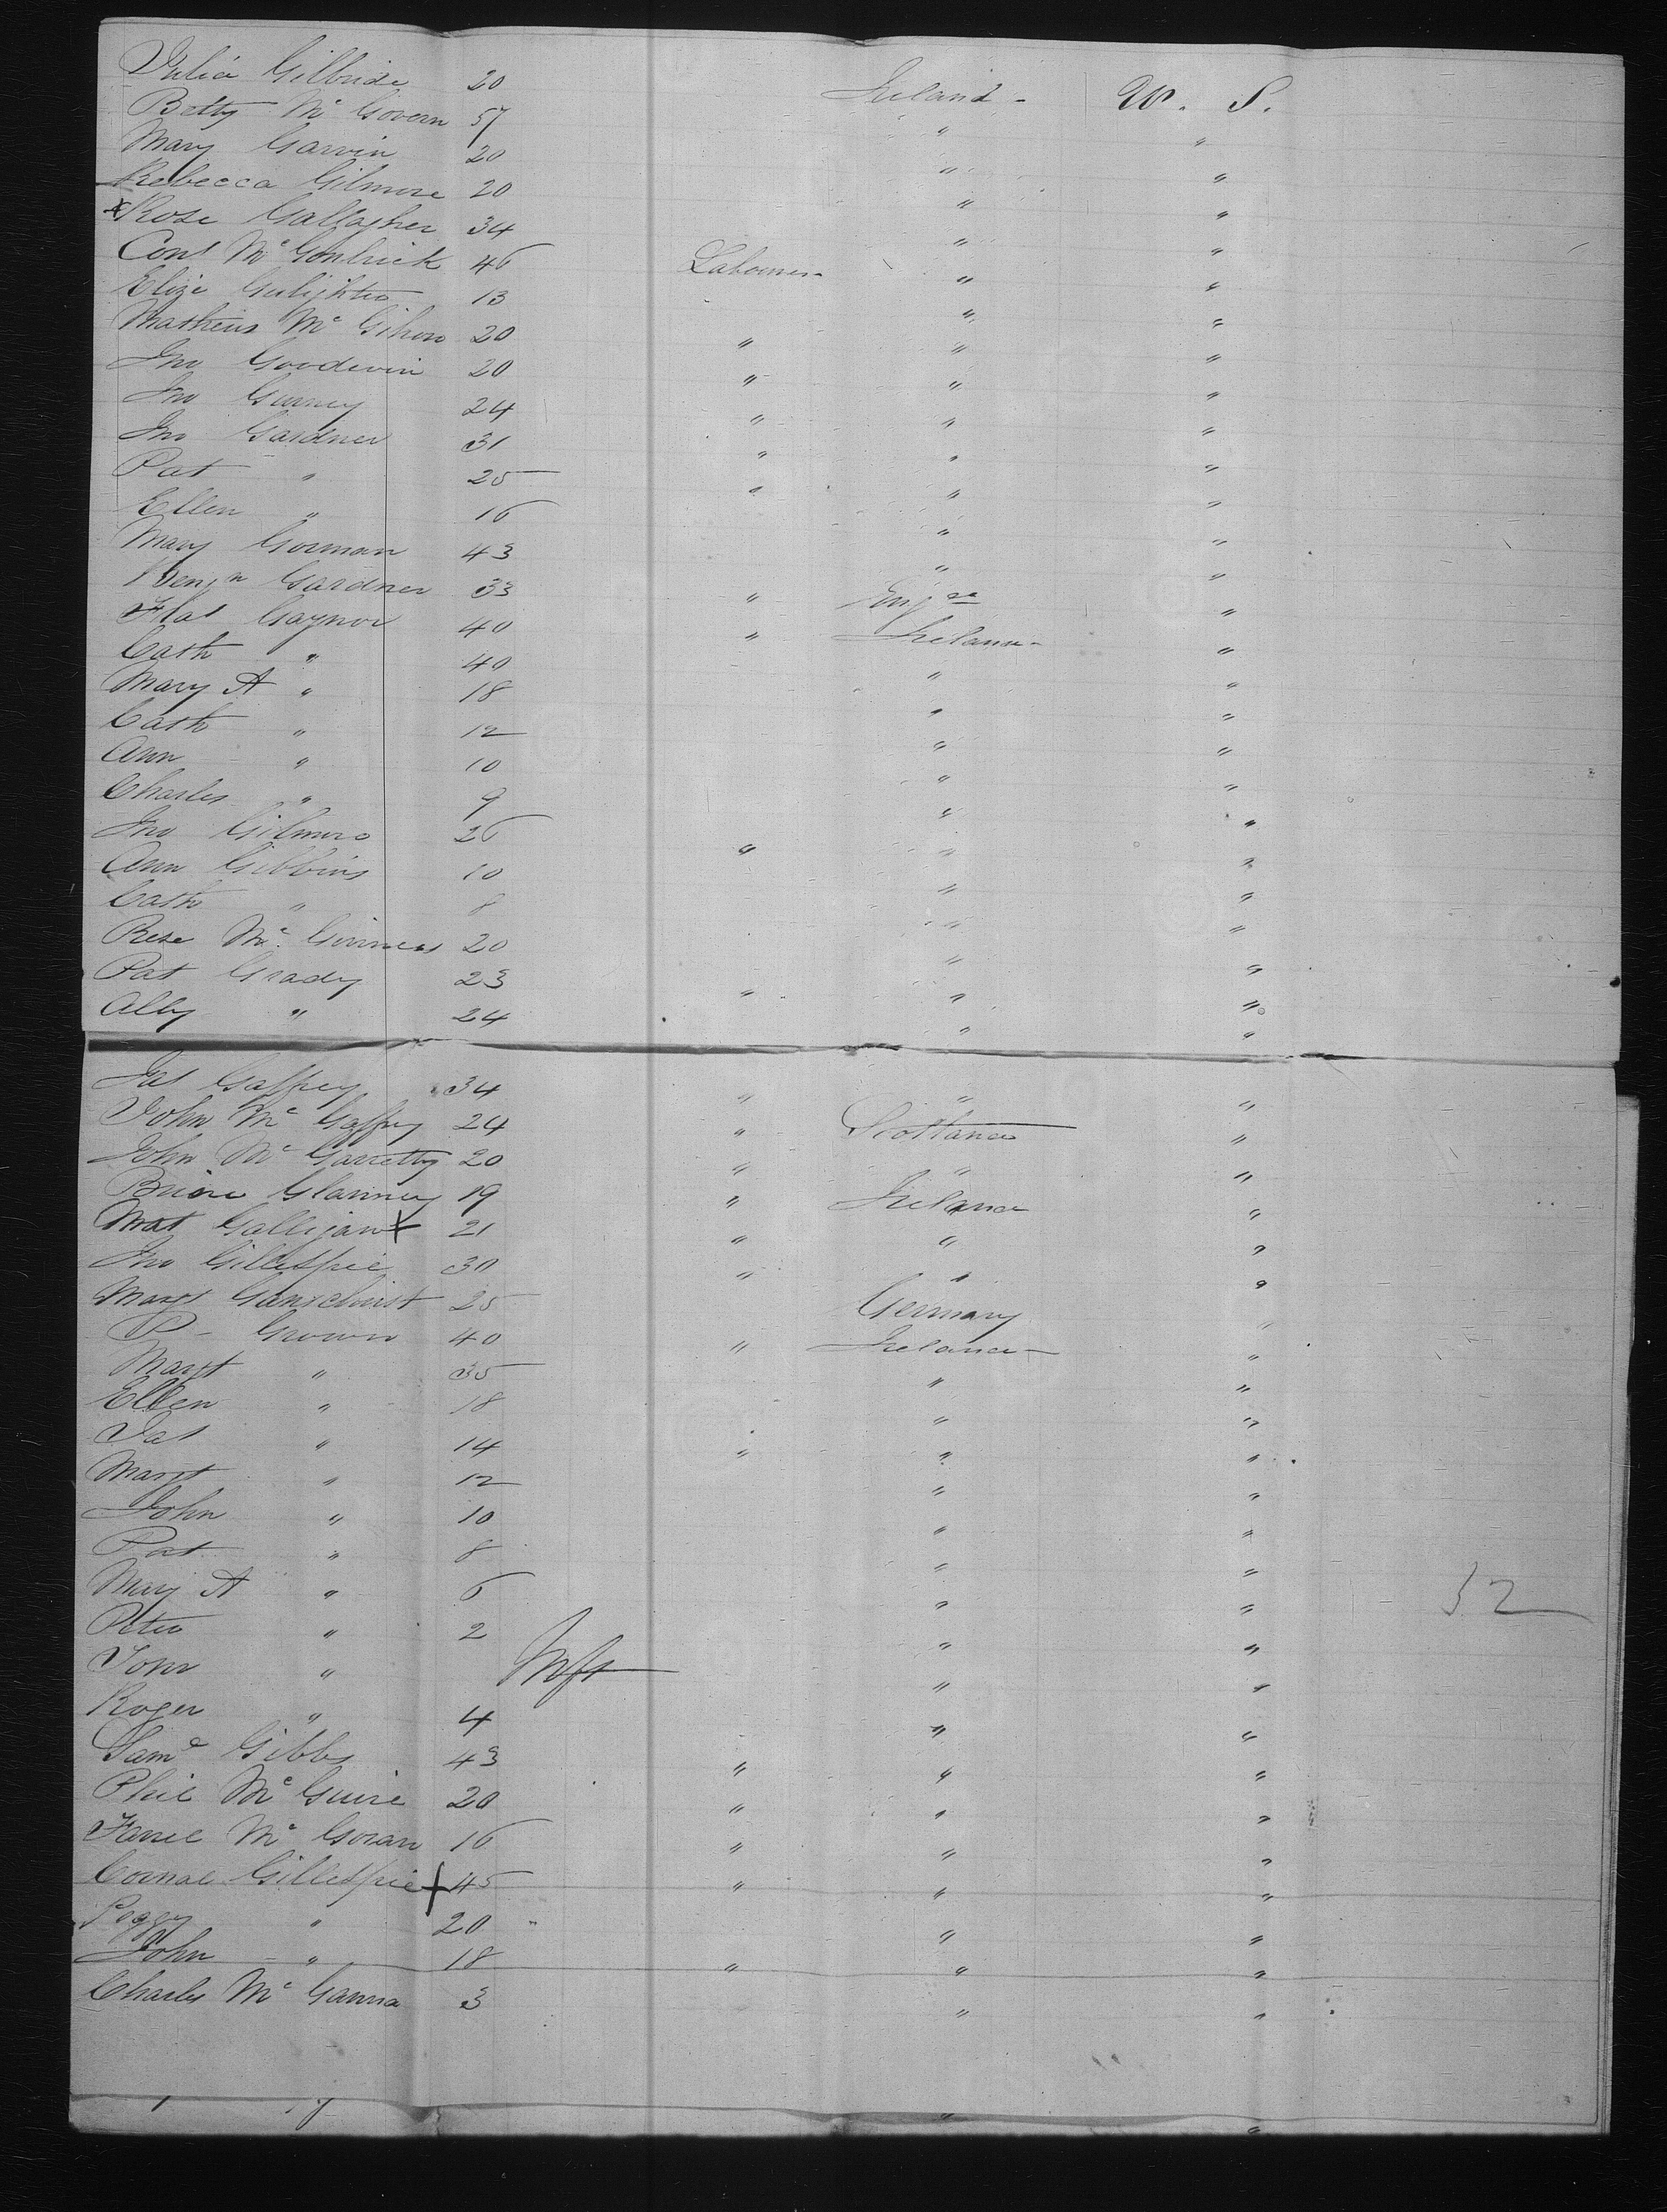 Julia Gilbride 20 Ireland - U. S.
Betty Mc Govern 57 " "
Mary Garvin 20 " "
Rebecca Gilmore 20 " "
x Rose Gallagher 34 " "
Cons Mc 46 Labourer - " "
Eliza 13 " "
Mathew Mc Gihon 20 " " "
Jno Goodwin 20 " " "
Jno Gurney 24 " " "
Jno Gardner 31 " " "
Pat " 25 " " "
Ellen " 16 " "
Mary Gorman 43 " "
Benjn Gardner 33 " Engd "
Gaynor 40 " Ireland - "
Cath " 40 " "
Mary A " 18 " "
Cath " 12 " "
Ann " 10 " "
Charles " 9 " "
Jno Gilmore 26 " " "
Ann Gibbins 10 " "
Cath " 8 " "
Rose Mc Ginness 20 " "
Pat Grady 23 " " "
Alby " 24 " "
Jas Gaffney 34 " " "
John Mc Gaffry 24 " Scotland "
John Mc Garretty 20 " " "
Glanney 19 " Ireland "
Mat Galligan x 21 " " "
Jno Gillespie 30 " " "
Margt 25 Germany "
P - Grown 40 " Ireland - "
Margt " 35 " "
Ellen " 18 " "
Jas " 14 " " "
Margt " 12 " "
John " 10 " "
Pat " 8 " "
Mary A " 6 " " 52
Peter " 2 " "
Tom " Inft " "
Roger " 4 " "
Saml Gibbs 43 " " "
Phil Mc Guire 20 " " "
Farrel Mc Goran 16 " " "
Cormac Gillespie + 45 " " "
Peggy " 20 " "
John " 18 " " "
Charles Mc Ganna 3 " "